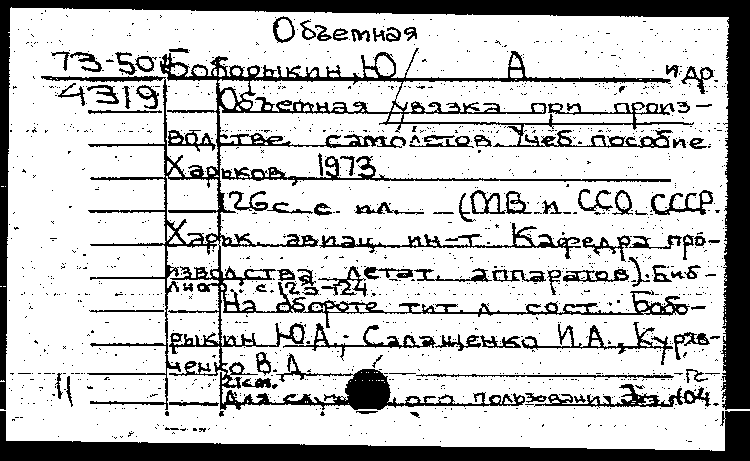 Объемная
73-50 Боборыкин, Ю А и др.
4319 Объемная увязка при произ-
водстве самолетов. Учеб. пособие.
Харьков, 1973.
126 с. с ил. (МВ и ССО СССР.
Харьк. авиац. ин-т. Кафедра про-
изводства летат. аппаратов). Биб-
лиогр.: с. 123-124
На обороте тит. л. сост.: Бобо-
рыкин Ю.А., Салащенко И.А.,
ченко В.Д.
21 см.
11 Для ого пользования. Экз. №04.